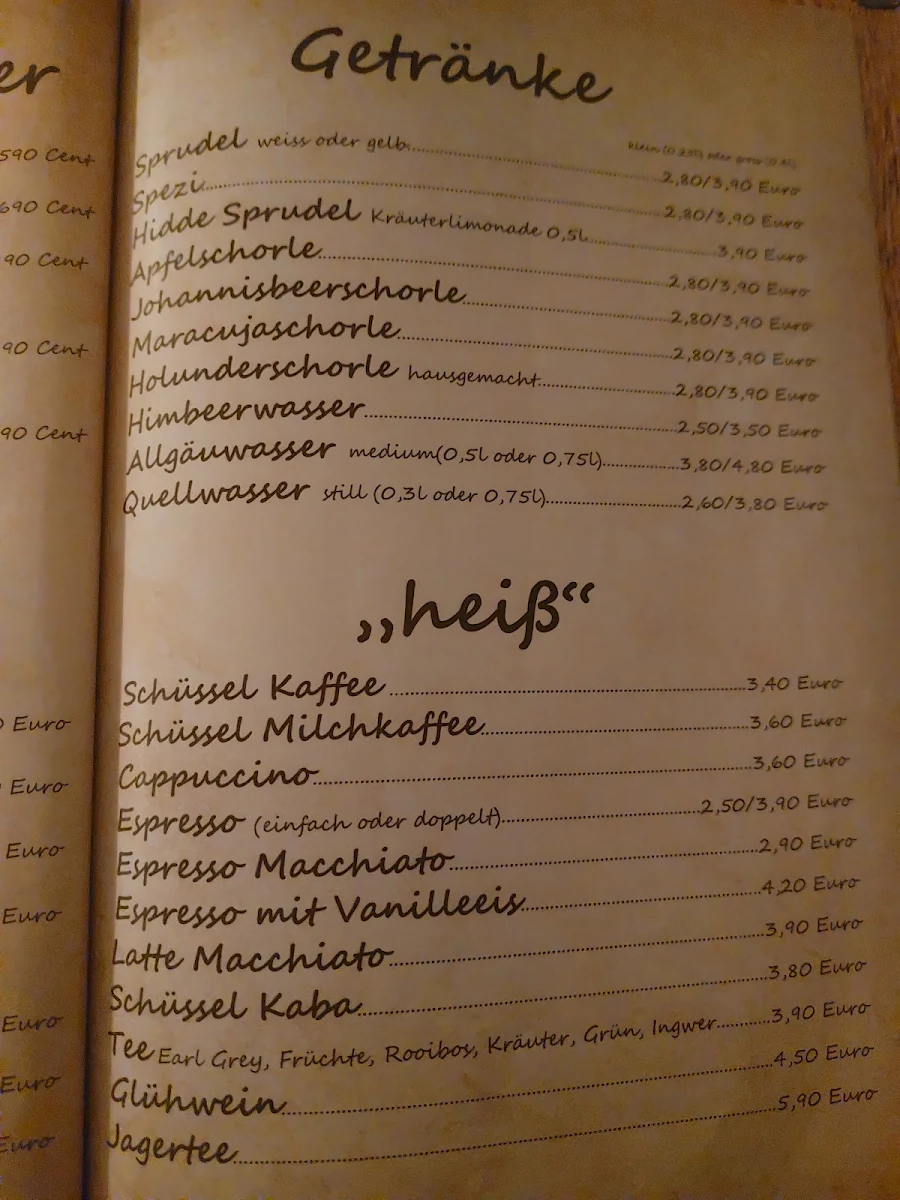 er
590 Cent
690 Cent
90 Cent
90 Cent
90 Cent
Euro
Euro
Euro
Euro
Euro
Euro
Euro
Getränke
klein (0,25l) oder gross (0,4l)
Sprudel weiss oder gelb 2,80/3,90 Euro
Spezi 2,80/3,90 Euro
Hidde Sprudel Kräuterlimonade 0,5l 3,90 Euro
Apfelschorle 2,80/3,90 Euro
Johannisbeerschorle 2,80/3,90 Euro
Maracujaschorle 2,80/3,90 Euro
Holunderschorle hausgemacht 2,80/3,90 Euro
Himbeerwasser 2,50/3,50 Euro
Allgäuwasser medium(0,5l oder 0,75l) 3,80/4,80 Euro
Quellwasser still (0,3l oder 0,75l) 2,60/3,80 Euro
„heiß“
Schüssel Kaffee 3,40 Euro
Schüssel Milchkaffee 3,60 Euro
Cappuccino 3,60 Euro
Espresso (einfach oder doppelt) 2,50/3,90 Euro
Espresso Macchiato 2,90 Euro
Espresso mit Vanilleeis 4,20 Euro
Latte Macchiato 3,90 Euro
Schüssel Kaba 3,80 Euro
Tee Earl Grey, Früchte, Rooibos, Kräuter, Grün, Ingwer 3,90 Euro
Glühwein 4,50 Euro
Jagertee 5,90 Euro